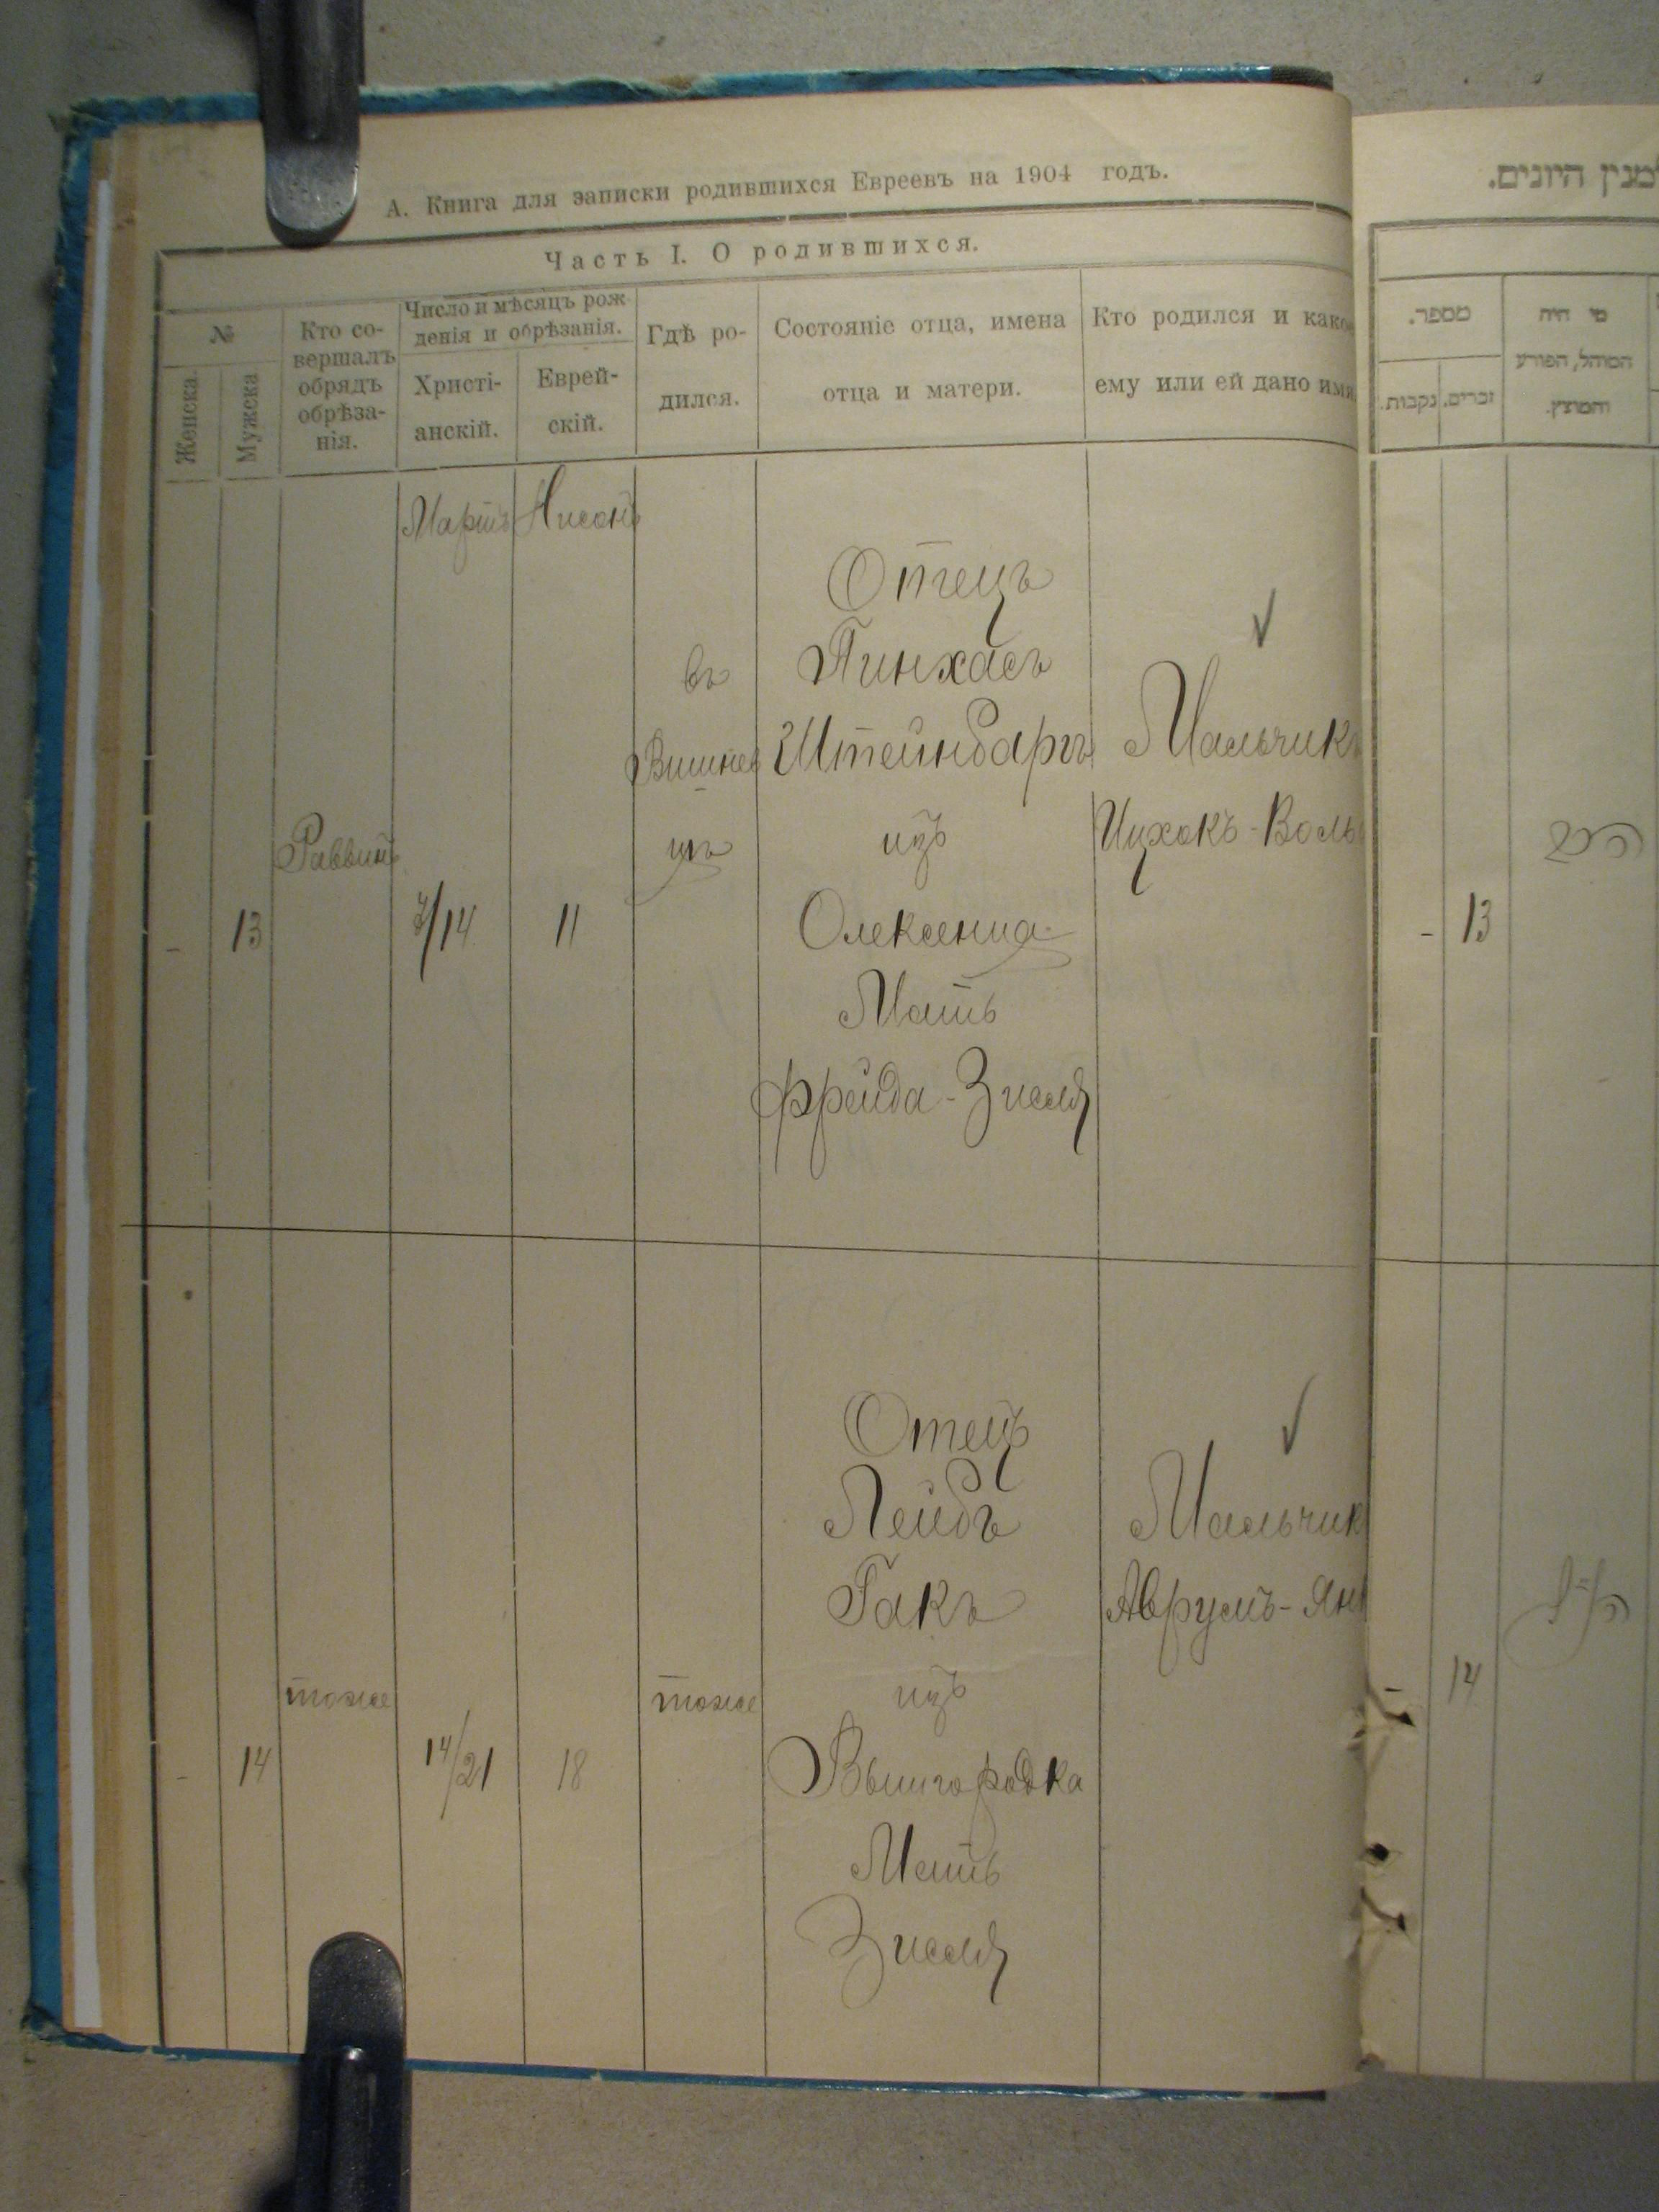 А. Книга для записки родившихся Евреевъ на 1904 годъ.
Часть I. О родившихся.
№
Женска.
Мужска
Кто со-
вершалъ
обрядъ
обрѣза-
нія.
Число и мѣсяцъ рож
денія и обрѣзанія.
Христі-
анскій.
Еврей-
скій.
Гдѣ ро-
дился.
Состояніе отца, имена
отца и матери.
Кто родился и како
ему или ей дано имя
Мартъ
Нисонъ
-
13
Раввинъ
7/14
11
въ
Вишнев
-
цъ
Отецъ
Пинхасъ
Штейнбаргъ
изъ
Олексенца
Мать
Фрейда-Зисля
Мальчикъ
Ицхокъ-Воль
-
14
тоже
14/21
18
тоже
Отецъ
Лейбъ
Гакъ
изъ
Вышгородка
Мать
Зисля
Мальчик
Аврумъ-Ян
למנין היונים.
מספר.
נקבות.
זכרים.
מי היה
המוהל, הפורע
והמוצץ.
-
13
-
14